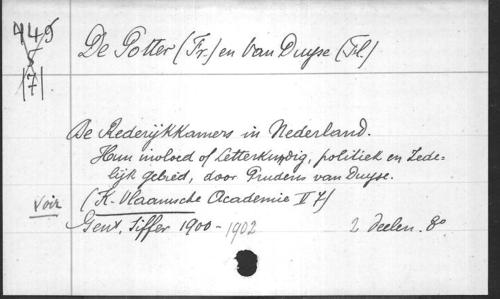 449
8
(7)
De Potter (Fr.) en Van Duyse (Fl.)
De Rederijkkamers in Nederland.
Hun invloed of Letterkundig, politiek en Zede=
lijk gebied, door Prudens van Duyse.
(K. Vlaamsche Academie II 7)
Voir
Gent, Siffer 1900-1902 2 deelen. 8º